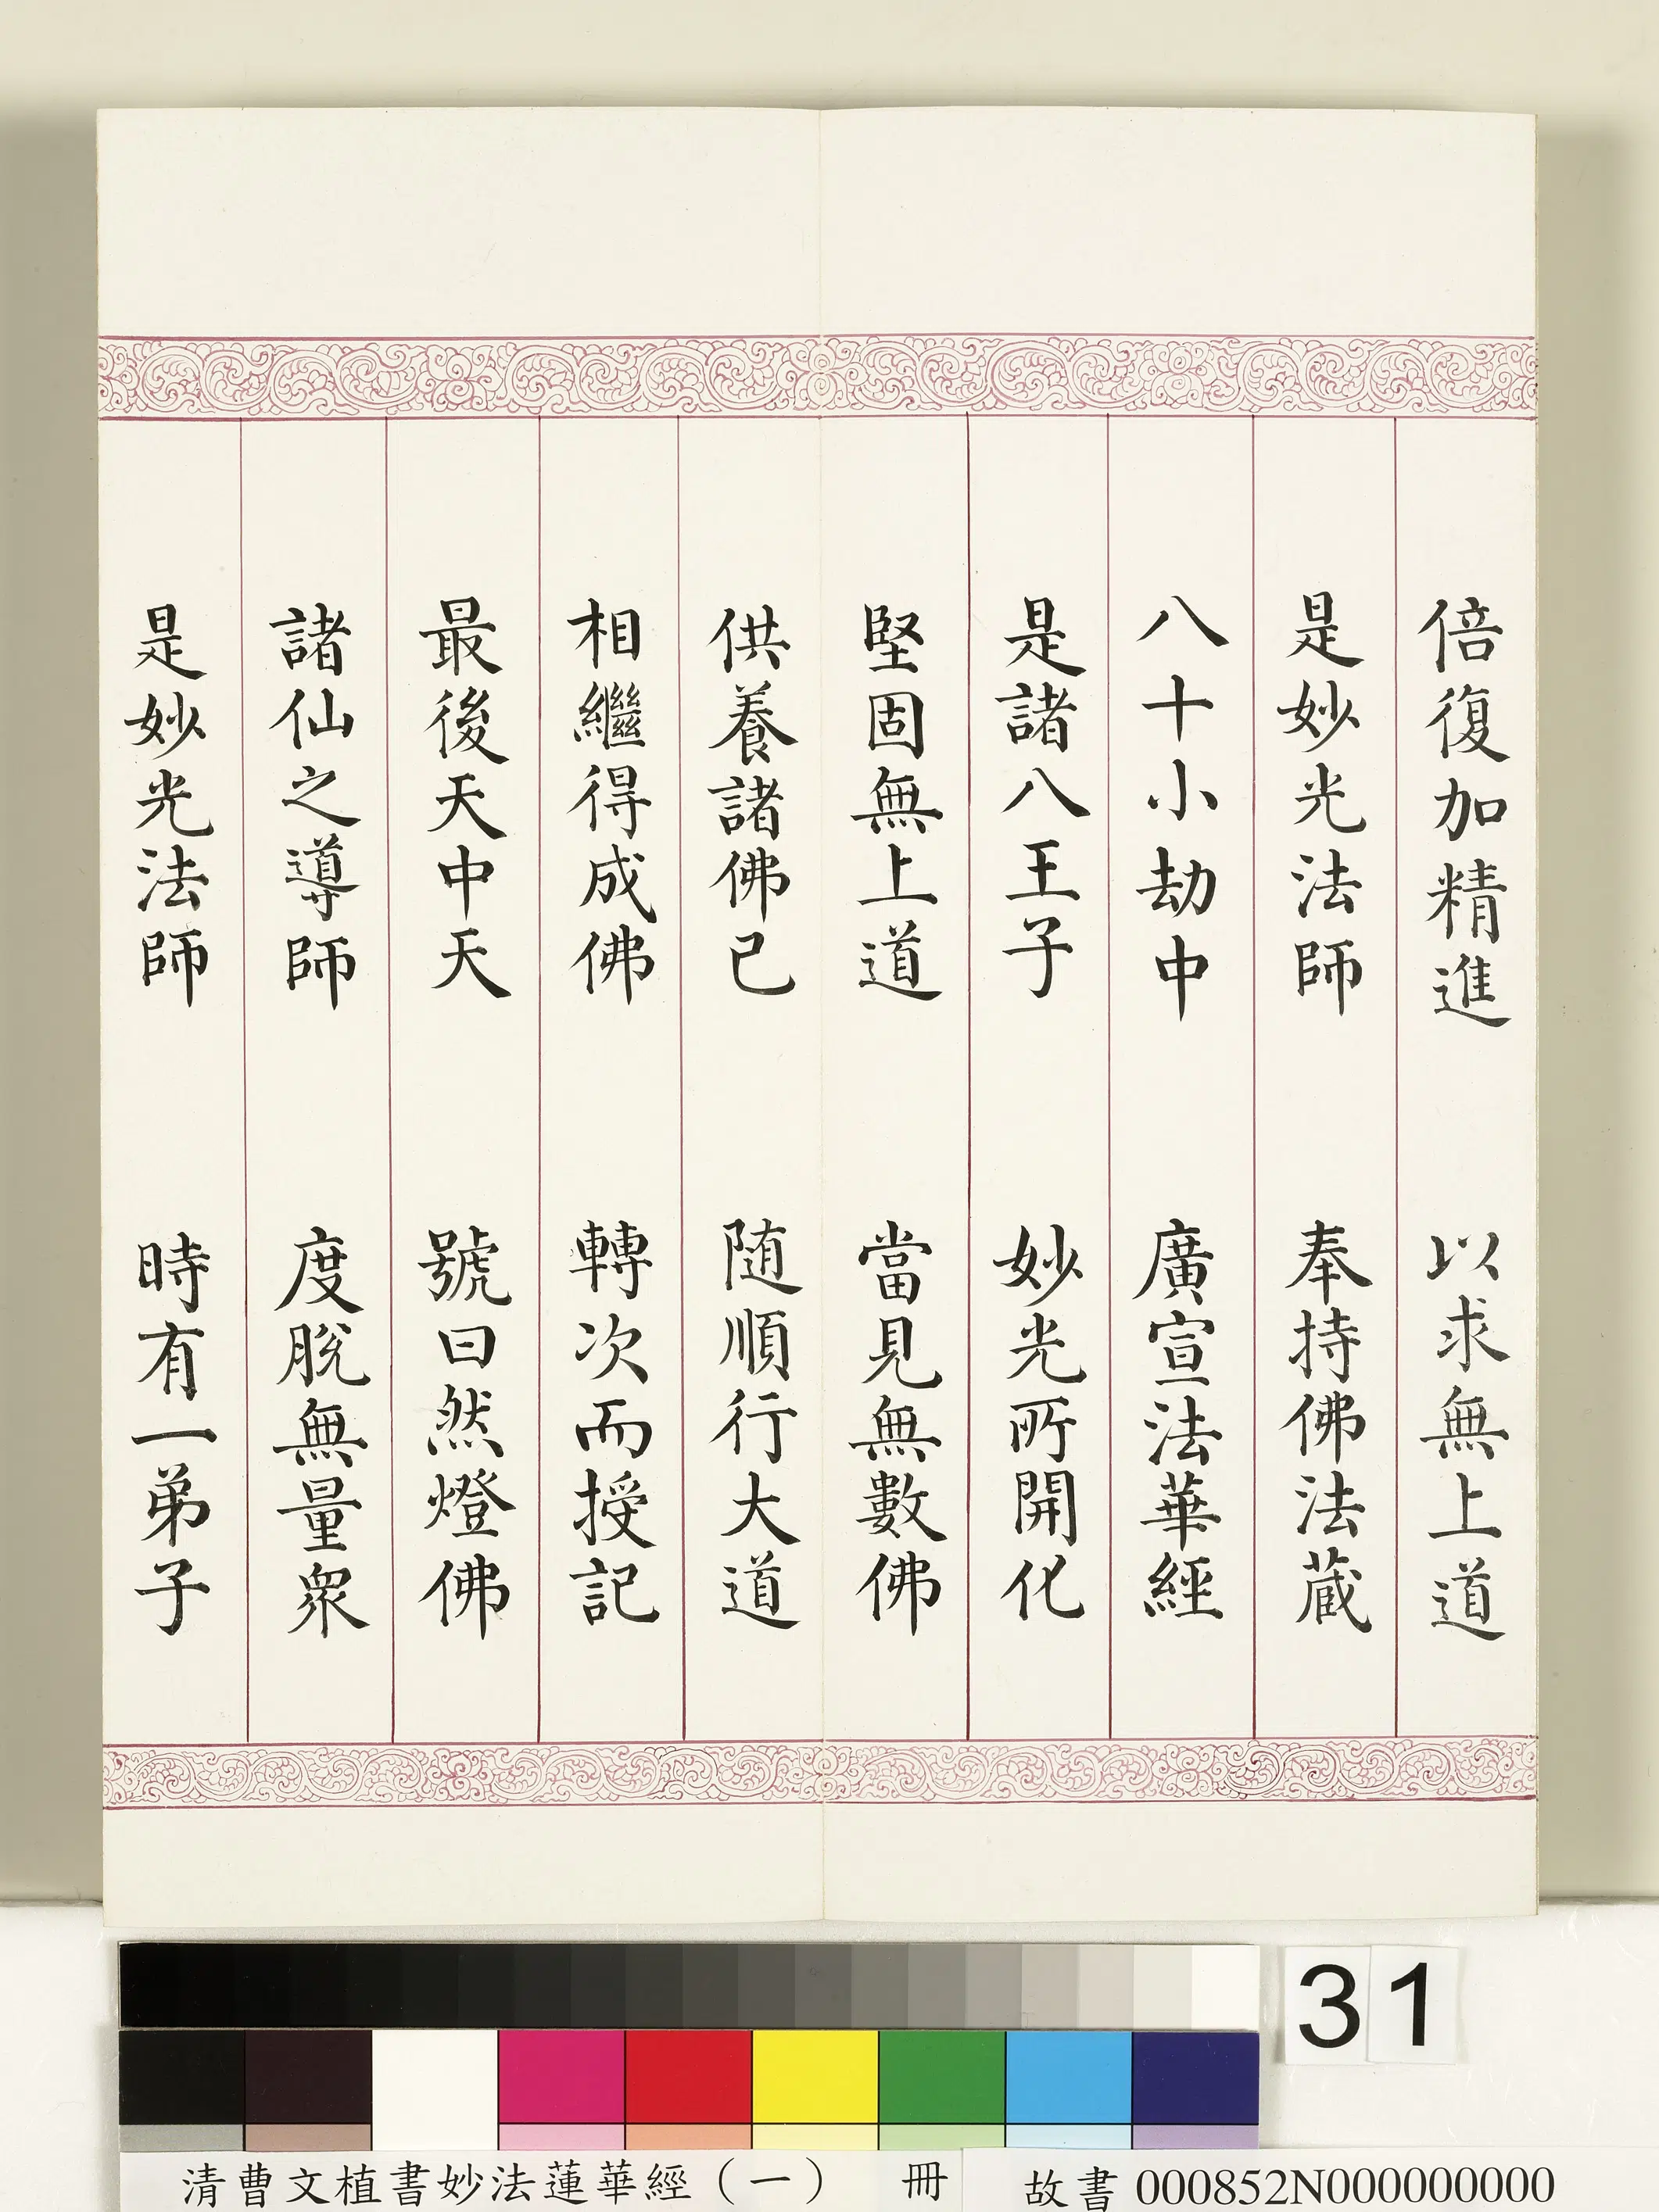 倍復加精進　以求無上道
是妙光法師　奉持佛法蔵
八十小劫中　廣宣法華經
是諸八王子　妙光所開化
堅固無上道　當見無數佛
供養諸佛已　随順行大道
相繼得成佛　轉次而授記
最後天中天　號曰然燈佛
諸仙之導師　度脫無量衆
是妙光法師　時有一弟子
31
清曹文植書妙法蓮華經（一）　冊　故書000852N000000000